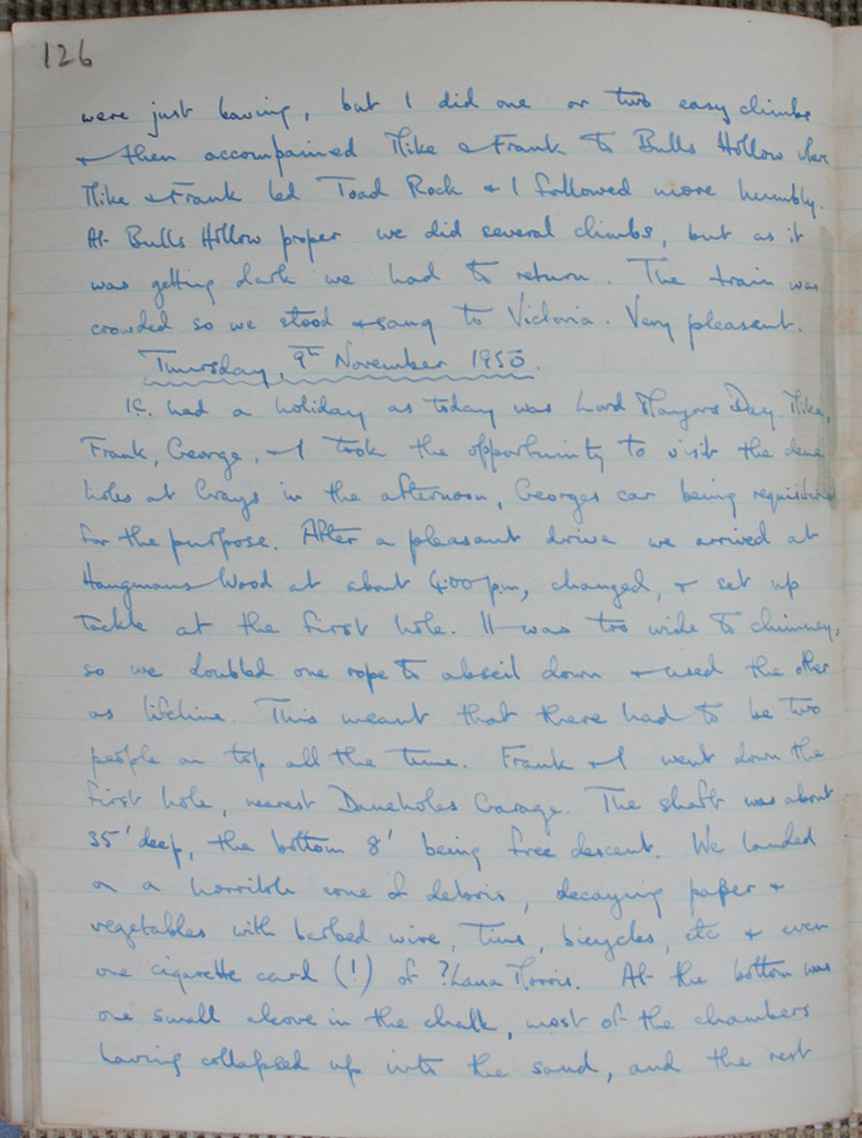 126
were just leaving, but I did one or two easy climbs
& then accompanied Mike & Frank to Bulls Hollow where
Mike & Frank led Toad Rock & I followed more humbly.
At Bulls Hollow proper we did several climbs, but as it
was getting dark we had to return. The train was
crowded so we stood & sang to Victoria. Very pleasant.
Thursday, 9th November 1950.
I.C. had a holiday as today was Lord Mayors Day. Mike,
Frank, George, & I took the opportunity to visit the dene
holes at Grays in the afternoon, Georges car being requisitioned
for the purpose. After a pleasant drive we arrived at
Hangmans Wood at about 4.00 p.m, changed, & set up
tackle at the first hole. It was too wide to chimney,
so we doubled one rope to abseil down & used the other
as lifeline. This meant that there had to be two
people on top all the time. Frank & I went down the
first hole, nearest Daneholes Garage. The shaft was about
35' deep, the bottom 8' being free descent. We landed
on a horrible cone of debris, decaying paper &
vegetables with barbed wire, tins, bicycles, etc & even
one cigarette card (!) of ?Lana Morris. At the bottom was
one small alcove in the chalk, most of the chambers
having collapsed up into the sand, and the rest